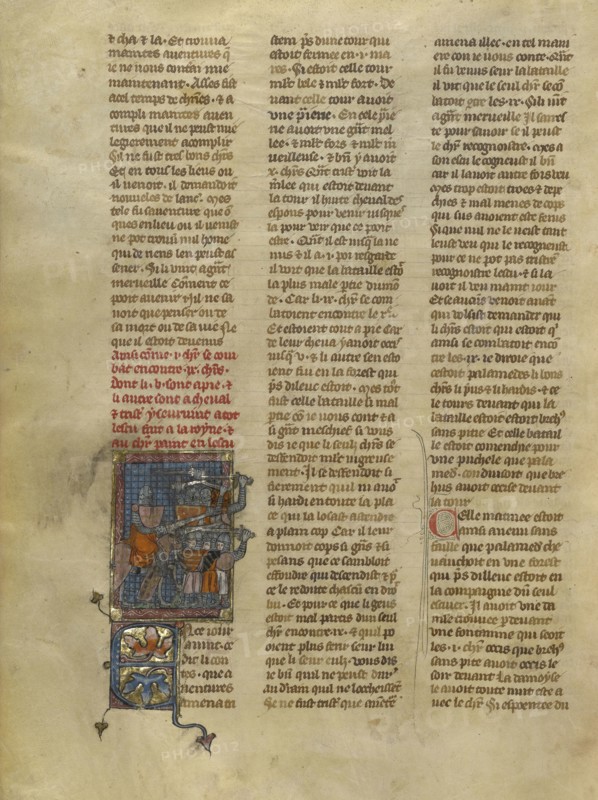 et cha et la. Et trouva
maintes aventures q̃
ie ne uous conteru mie
maintenant. Asses fist
acel temps de chr̃ies. et a
compli maintes auen
tures que il ne peust mie
legierement acomplir
Sil ne fust tres bons chr̃s
Et en touz les lieus ou
il uenoit. il demandoit
nouueles de lanc̃.
qui de riens len peust as
sener. Si li uint a gr̃nt
merueille Coment ce
pooit auenir. Il ne sa
uoit que penser ou de
sa mort ou de sa uie Ne
que il estoit deuenus
Ainsi cõme .i. chr̃ se com
bat encontre .ix. chr̃s.
dont li .v. sont a pie. et
li autre sont a cheual
et trist̃ y seuruint atot
lescu
Ace iour
auint. ce
dit li con
tes. que a
uentures
amena tri
stem pr̃s dune tour qui
estoit fermee en .i. ma
res. Si estoit celle tour
ml̃t bele et ml̃t fort. De
uant celle tour auoit
vne pr̃ierie. En cele pr̃ie
ne auoit une gr̃nt mel
lee. et ml̃t fors et ml̃t m̃
ueilleuse. et bñ y auoit
.x. chr̃s Qñt trist̃ uoit la
mlee qui estoit deuant
la tour il hurte cheual des
esperons pour uenir iusque
la pour veir que ce pooit
estre. Qñt il est iusq̃ la ue
nus et il a .i. poi resgarde
il voit que la bataille estoit
la plus male ptie du mõ
de. Car li .ix. chr̃ se com
batoient encontre le
Et estoient tout a pie Car
de leur cheuax
iusq̃ .v. et li autre sen esto
ient fui en la forest qui
pr̃s dileuc estoit. mes tote
fust celle bataille si mal
ptie cõ ie uous cont et a
si gr̃nt meschief si uous
dis ie que li seulz chr̃s se
deffendoit mlt uigreuse
ment. Il se deffendoit si
fierement quil ni auoit
si hardi en toute la pla
ce qui la losast atendre
a plain cop Car il leur
donnoit cops si gñs et si
pesans que ce sambloit
effoudre qui descendist et
ce le redoute chascũ en dro
lui. Et pour ce que li geus
estoit mal partis dun seul
chr̃ encontre .ix. et quil po
oient plus seur seur lui
que li seur eulz. vous dis
ie bñ quil ne peust dur
au drain quil ne locheissent
Se ne fust trist̃ que auẽte
amena illec. en tel mani
ere con ie uous conte. Qñt
il fu uenus seur la bataille
il vit que le seul chr̃ secõ
batoit gtre les .ix. Sili uit
a gr̃nt merueille Il sarres
te pour sauoir se il peust
le chr̃ recognoistre. mes a
son escu le cogneust il bñ
car il lauoit autre fois ueu
mes trop estoit troes et depe
chies et mal menes de cops
qui sus auoient este ferus
Si que nul ne le ueist tant
leust ueu qui le recogneust.
pour ce ne pot pas tristẽ
recognoistre lescu. et si la
uoit il veu maint iour
Et se aucũs venoit auant
qui uolsist demander qui
li chr̃s estoit qui estoit q̃
ainsi se combatoit encõ
tre les .ix. ie diroie que
cestoit palamedes li bons
chr̃s li prus et li hardis. et ce
le tours deuant qui la
bataille estoit estoit breh̃s
sans pitie Et celle batail
le estoit comencdie pour
vne puchele que pala
med̃. conduisoit que bre
hus auoit occise deuant
la tour
Celle matinee estoit
ainsi auenu sans
faille que palamed̃ che
uauchoit en vne forest
qui pr̃s dilleuc estoit en
la compaignie dũ seul
escuier. Il auoit vne da
ml̃t trouuee p̃ deuant
vne fontaine qui seoit
les .i. chr̃ occis que breh̃s
sans pite auoit occis le
soir deuant La damoyse
le auoit toute nuit este a
uec le chr̃. Si espoentee du